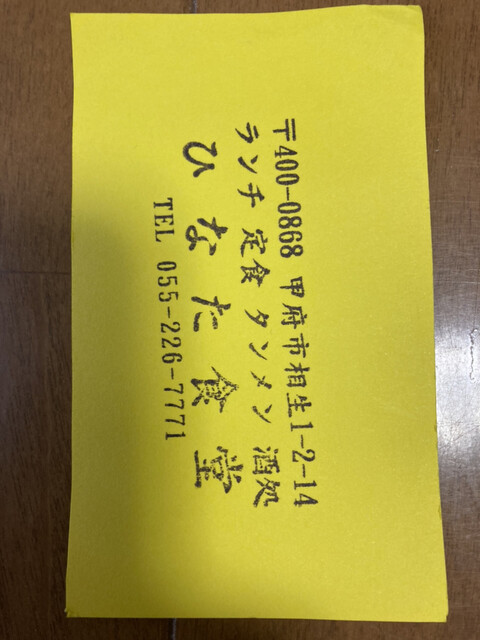 〒400-0868 甲府市相生1-2-14
ランチ 定食 タンメン 酒処
ひなた食堂
TEL 055-226-7771